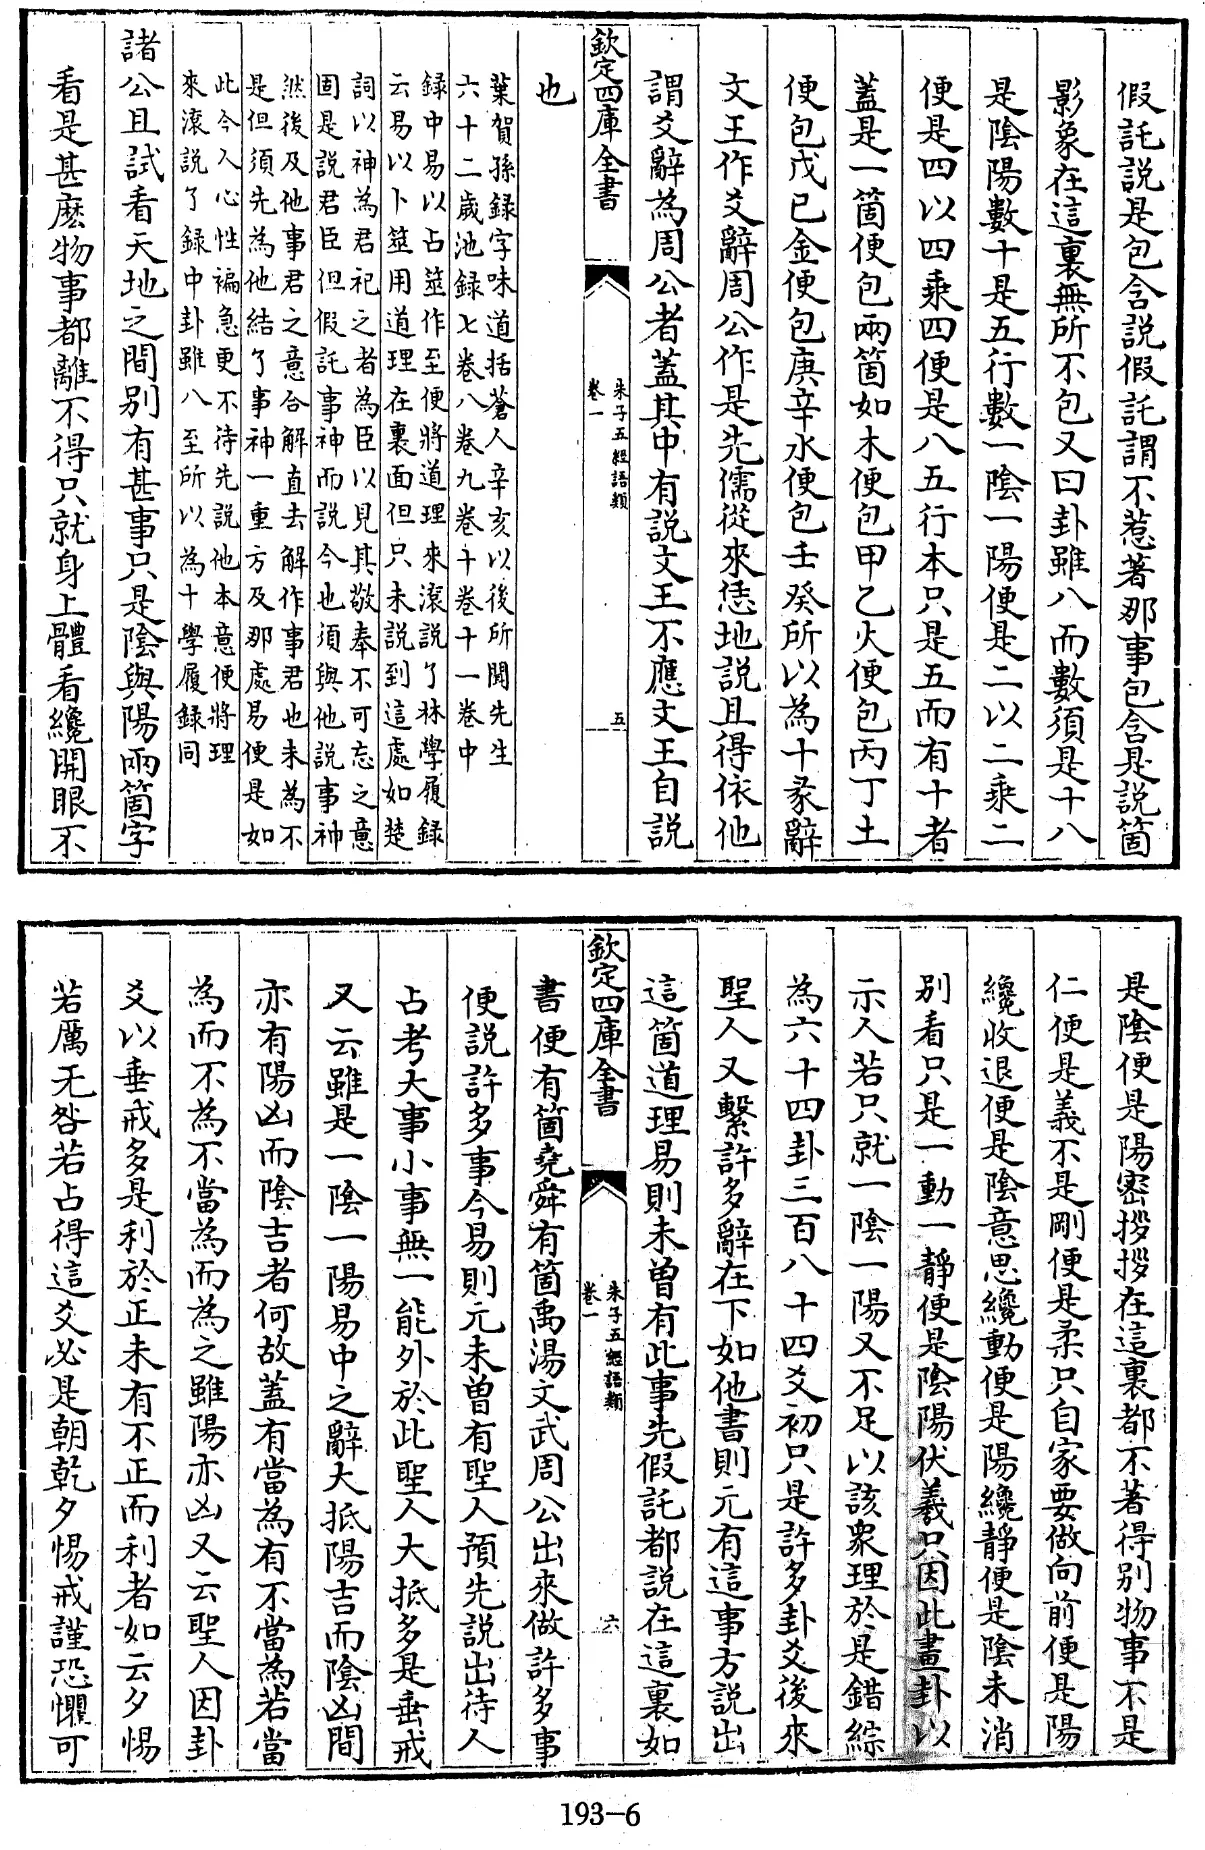 假託説是包含説假託謂不惹著那事包含是説箇
影象在這裏無所不包又曰卦雖八而數須是十八
是陰陽數十是五行數一陰一陽便是二以二乘二
便是四以四乘四便是八五行本只是五而有十者
蓋是一箇便包兩箇如木便包甲乙火便包丙丁土
便包戊己金便包庚辛水便包壬癸所以為十彖辭
文王作爻辭周公作是先儒從來恁地説且得依他
謂爻辭為周公者蓋其中有説文王不應文王自説
也
葉賀孫錄字味道括蒼人辛亥以後所聞先生
六十二歲池録七卷八卷九卷十卷十一卷中
録中易以占筮作至便將道理來滚説了林學履録
云易以卜筮用道理在裏面但只未説到這處如楚
詞以神為君祀之者為臣以見其敬奉不可忘之意
固是説君臣但假託事神而説今也須與他説事神
然後及他事君之意合解直去解作事君也未為不
是但須先為他結了事神一重方及那處易便是如
此今人心性褊急更不待先説他本意便將理
來滚説了録中卦雖八至所以為十學履録同
諸公且試看天地之間別有甚事只是陰與陽兩箇字
看是甚麽物事都離不得只就身上體看纔開眼不
欽定四庫全書
朱子五經語類
卷一
五
是陰便是陽密拶拶在這裏都不著得別物事不是
仁便是義不是剛便是柔只自家要做向前便是陽
纔收退便是陰意思纔動便是陽纔靜便是陰未消
別看只是一動一靜便是陰陽伏羲只因此畫卦以
示人若只就一陰一陽又不足以該衆理於是錯綜
為六十四卦三百八十四爻初只是許多卦爻後來
聖人又繫許多辭在下如他書則元有這事方説出
這箇道理易則未曽有此事先假託都説在這裏如
書便有箇堯舜有箇禹湯文武周公出來做許多事
便説許多事今易則元未曽有聖人預先説出待人
占考大事小事無一能外於此聖人大抵多是垂戒
又云雖是一陰一陽易中之辭大抵陽吉而陰凶間
亦有陽凶而陰吉者何故蓋有當為有不當為若當
為而不為不當為而為之雖陽亦凶又云聖人因卦
爻以垂戒多是利於正未有不正而利者如云夕惕
若厲无咎若占得這爻必是朝乾夕惕戒謹恐懼可
欽定四庫全書
朱子五經語類
卷一
六
193-6